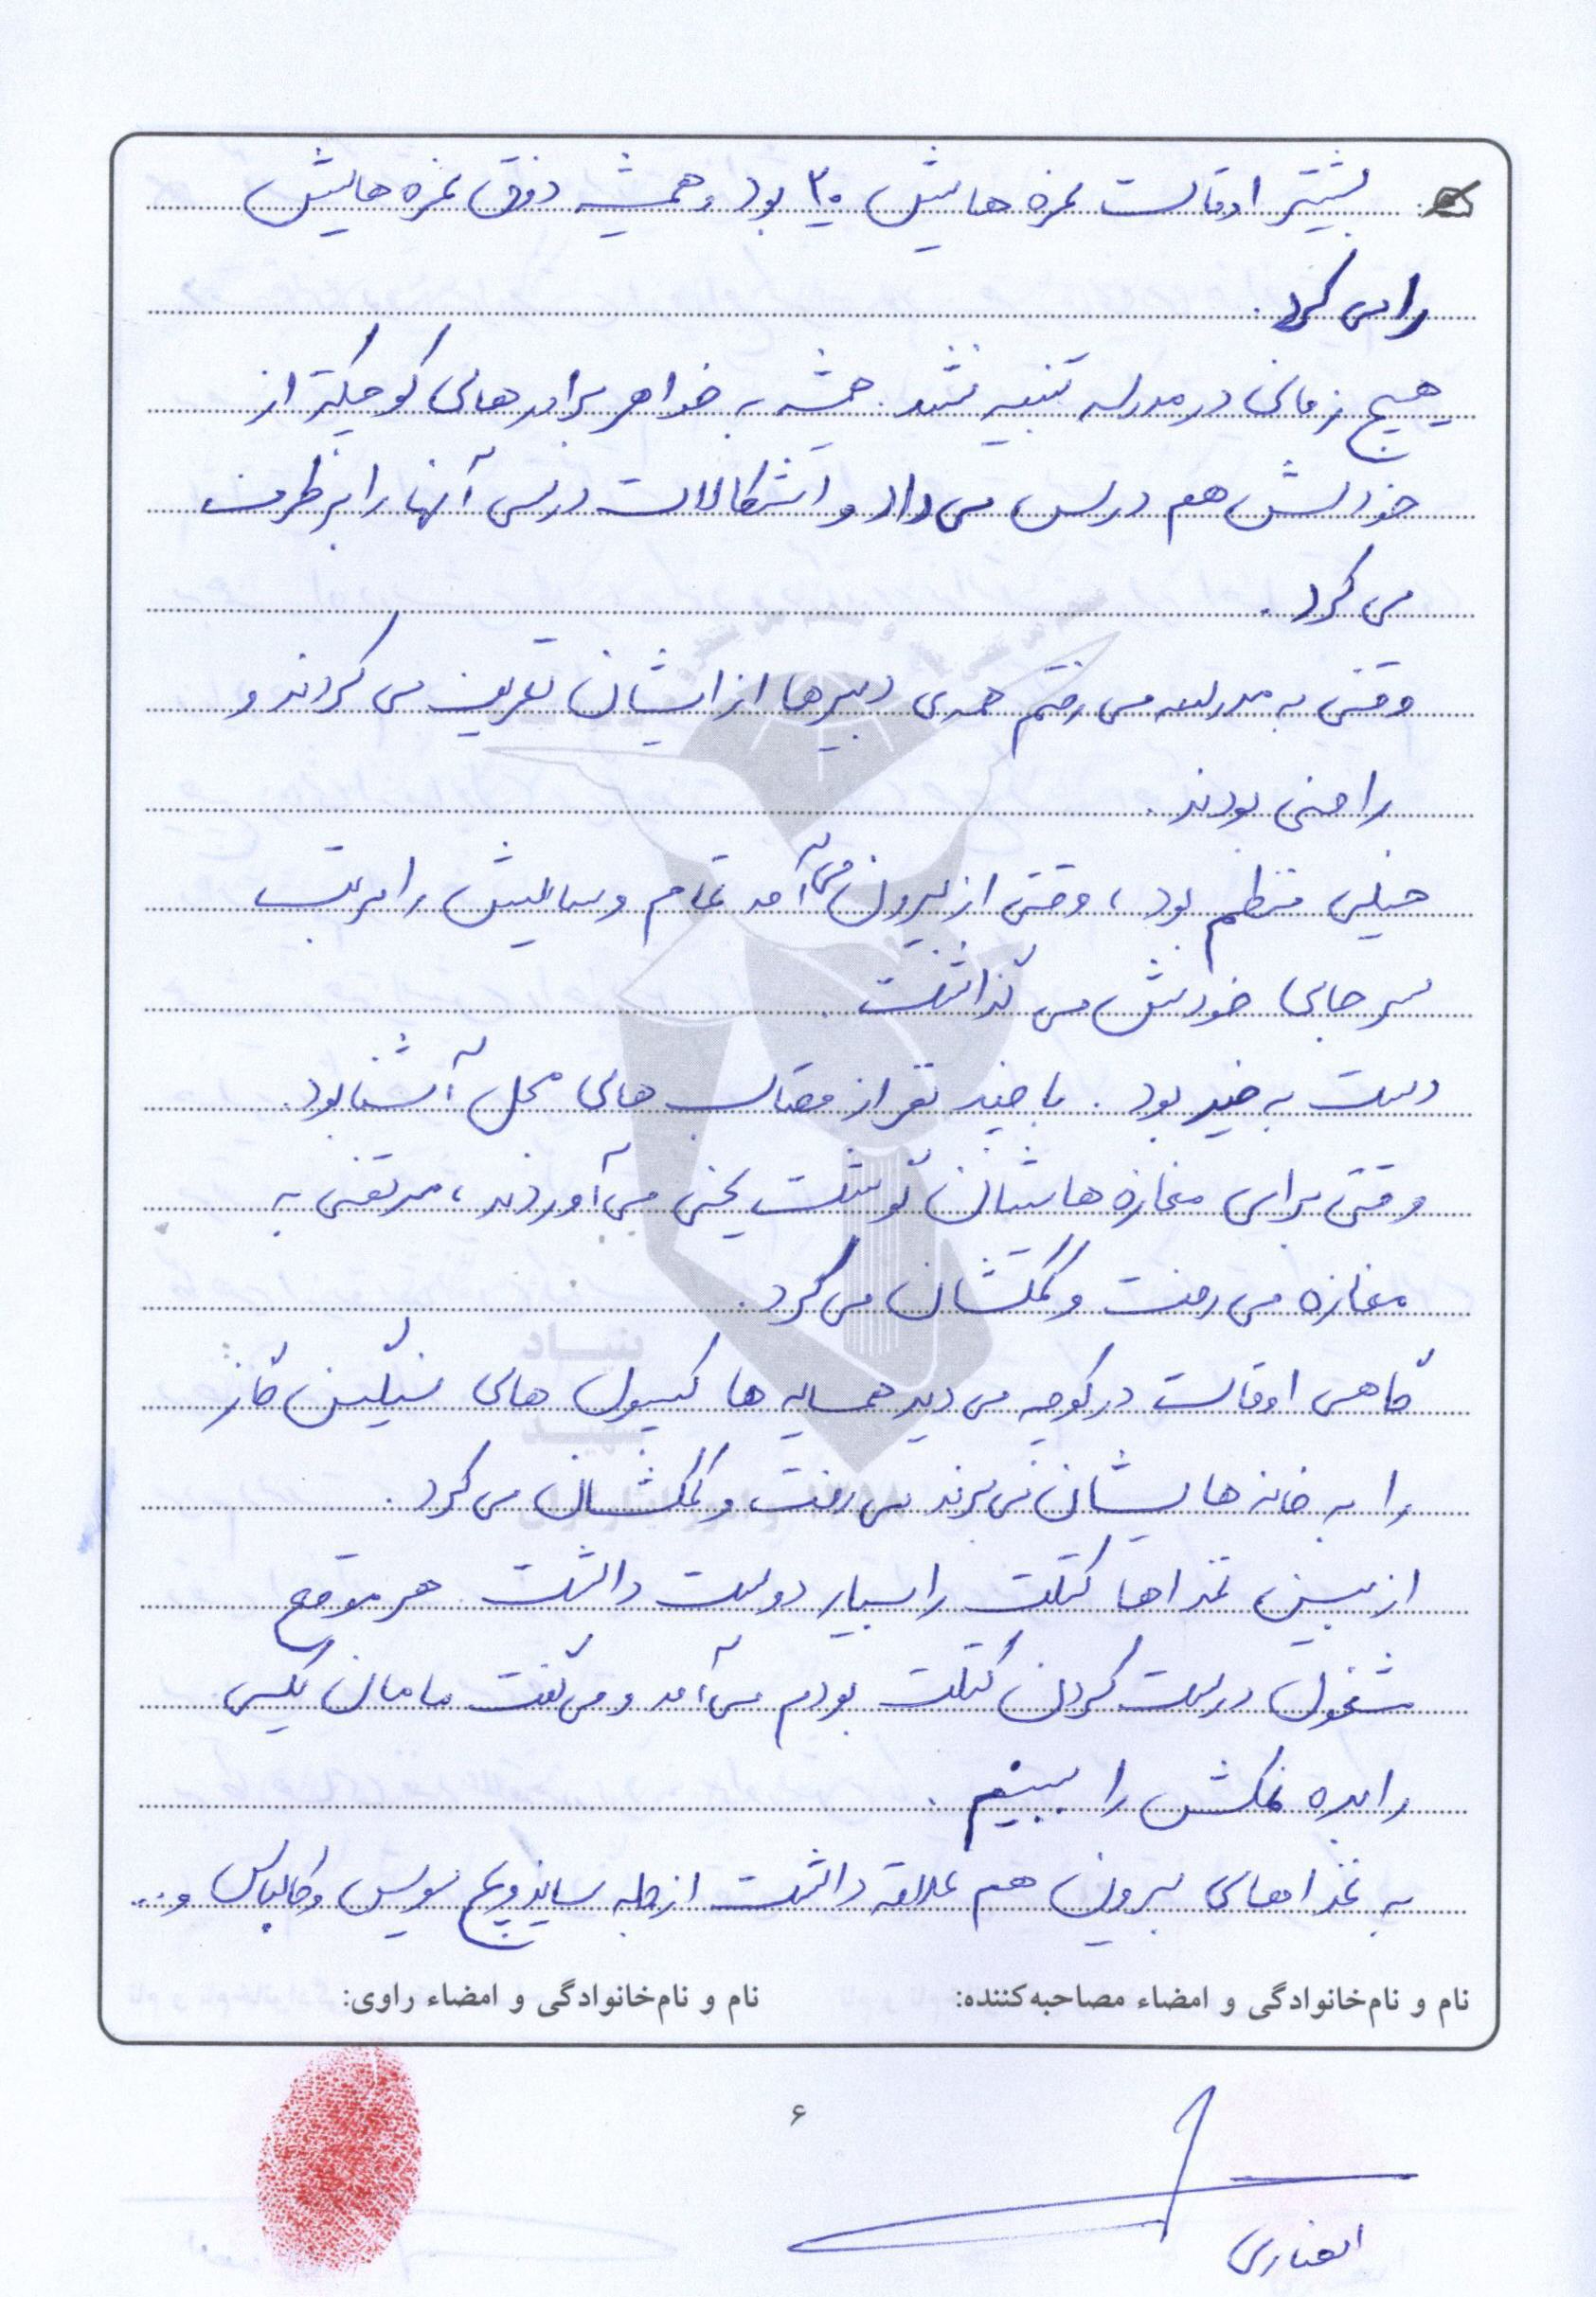 بیشتر اوقات نمره هایش ۲۰ بود و همیشه ذوق نمره هایش
را می کرد.
هیچ زمانی در مدرسه تنبیه نشد. همیشه به خواهر برادرهای کوچکتر از
خودش هم درس می داد و اشکالات درسی آنها را برطرف
می کرد.
وقتی به مدرسه می رفتم همه ی دبیرها از ایشان تعریف می کردند و
راضی بودند.
خیلی منظم بود، وقتی از بیرون می آمد تمام وسایلش را مرتب
سر جای خودش می گذاشت.
دست به خیر بود. با چند نفر از قصاب های محل آشنا بود.
وقتی برای مغازه هایشان گوشت یخی می آوردند، مرتضی به
مغازه می رفت و کمکشان می کرد.
گاهی اوقات در کوچه می دید همسایه ها کپسول های سنگین گاز
را به خانه هایشان می برند می رفت و کمکشان می کرد.
از بین غذاها کتلت را بسیار دوست داشت. هر موقع
مشغول درست کردن کتلت بودم می آمد و می گفت مامان یکی
را بده نمکش را ببینم.
به غذاهای بیرون هم علاقه داشت از جمله ساندویچ سوسیس و کالباس و ...
نام و نام‌خانوادگی و امضاء مصاحبه‌کننده:
نام و نام‌خانوادگی و امضاء راوی:
۶
انصاری
بنیاد
شهید